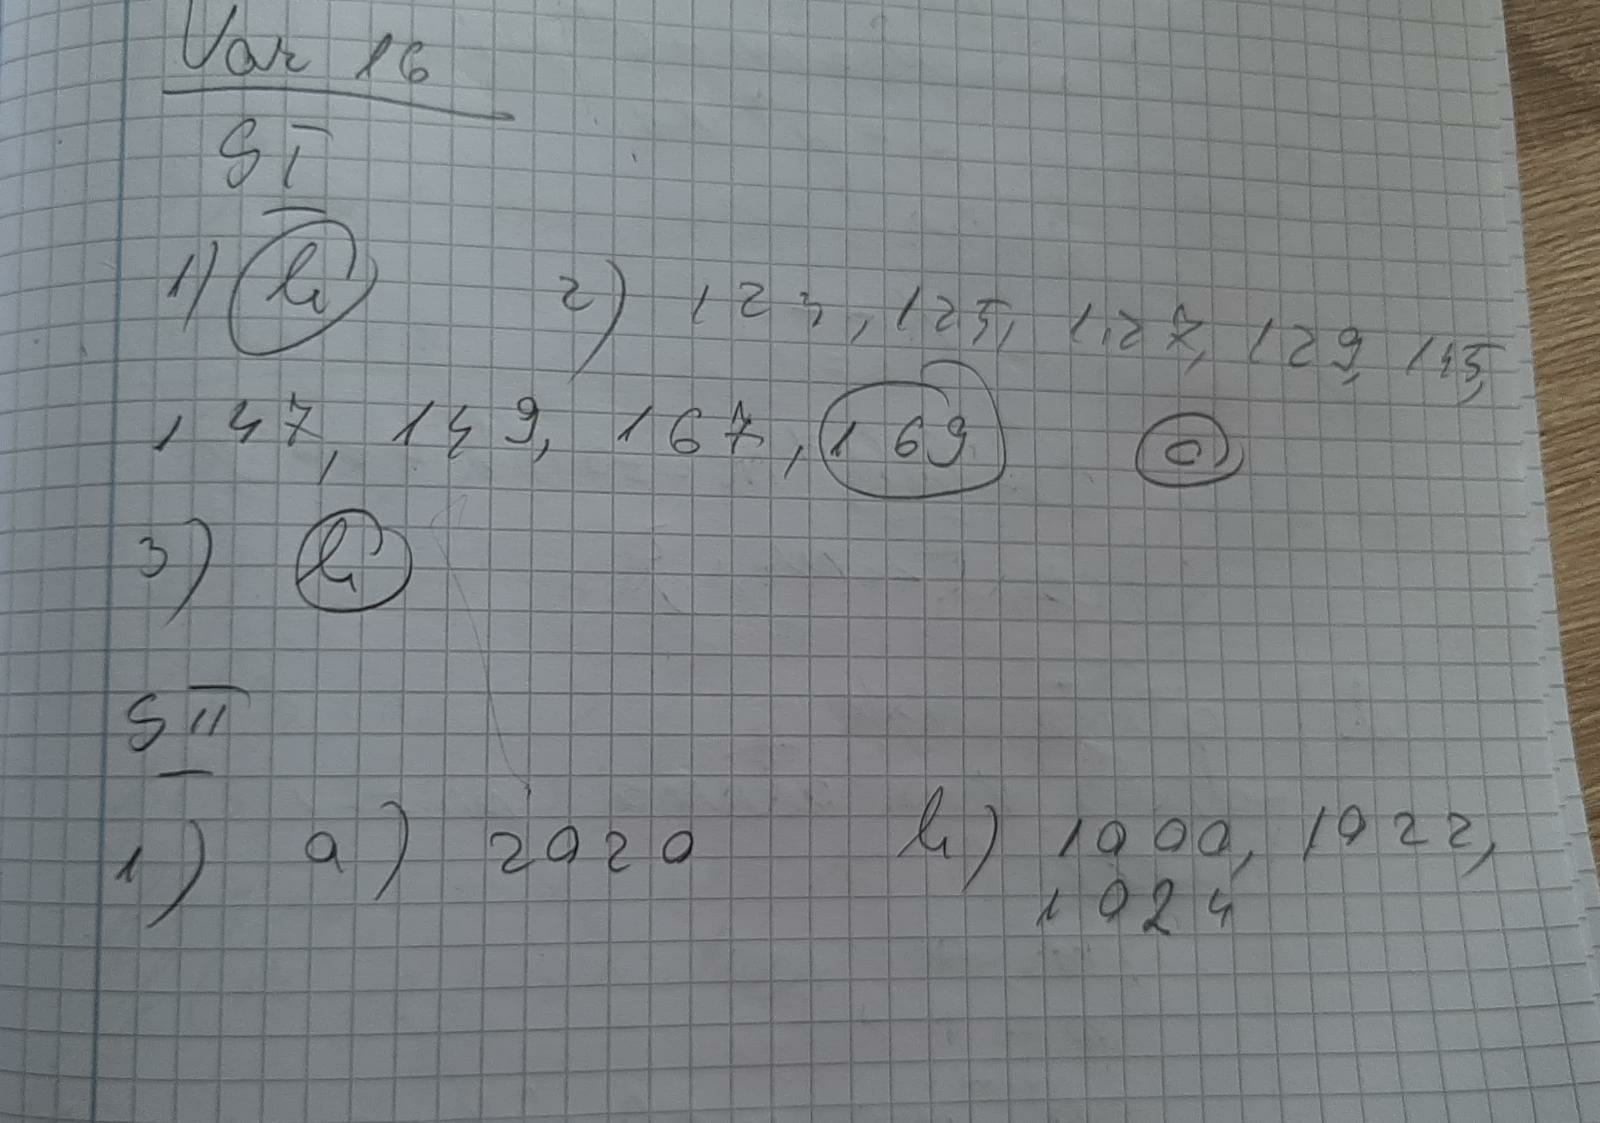 Var 16
SI
1) b 2) 123, 125, 127, 129, 145,
147, 149, 167, 169 c
3) b
SII
1) a) 2020 b) 1000, 1022,
1024